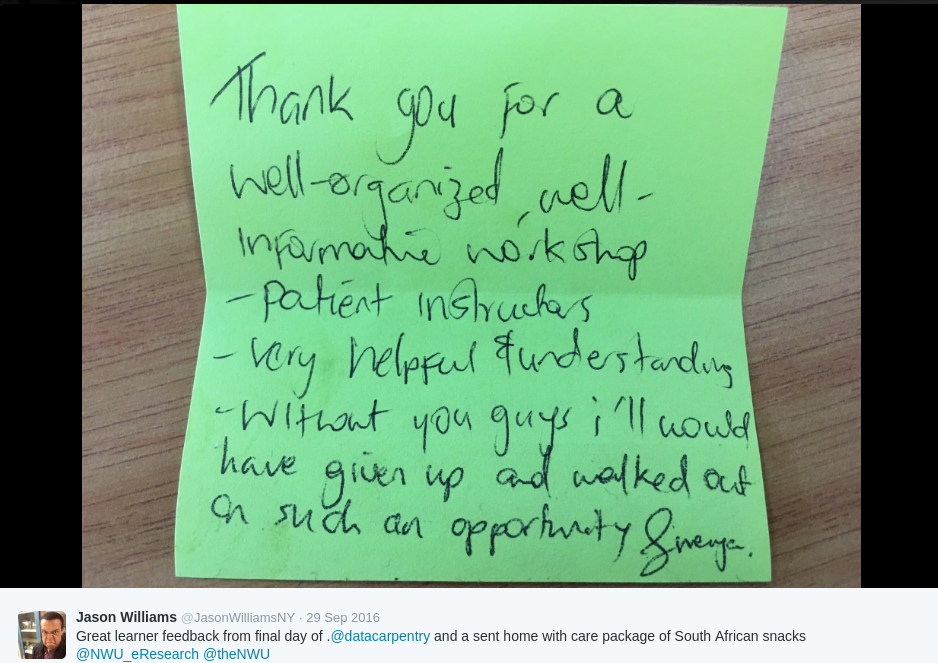 Thank you for a
well-organized, well-
Informative workshop
- Patient Instructors
- Very helpful & understanding
- Without you guys i'll would
have given up and walked out
on such an opportunity
Jason Williams @JasonWilliamsNY · 29 Sep 2016
Great learner feedback from final day of .@datacarpentry and a sent home with care package of South African snacks
@NWU_eResearch @theNWU